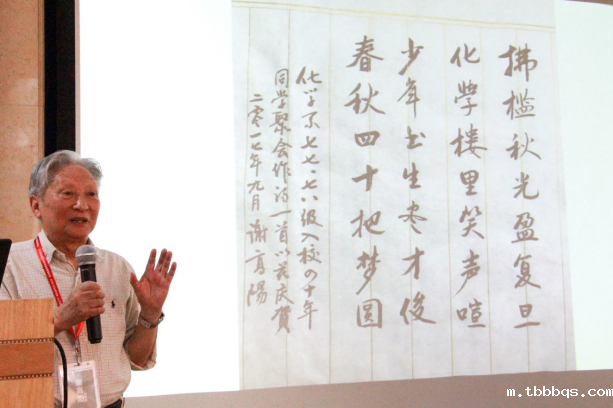 拂槛秋光盈复旦
化学楼里笑声喧
少年书生尽才俊
春秋四十把梦圆
化学系七七、七八级入校四十年
同学聚会作诗一首以表庆贺
二零一七年九月 谢高阳
m.tbbbqs.com